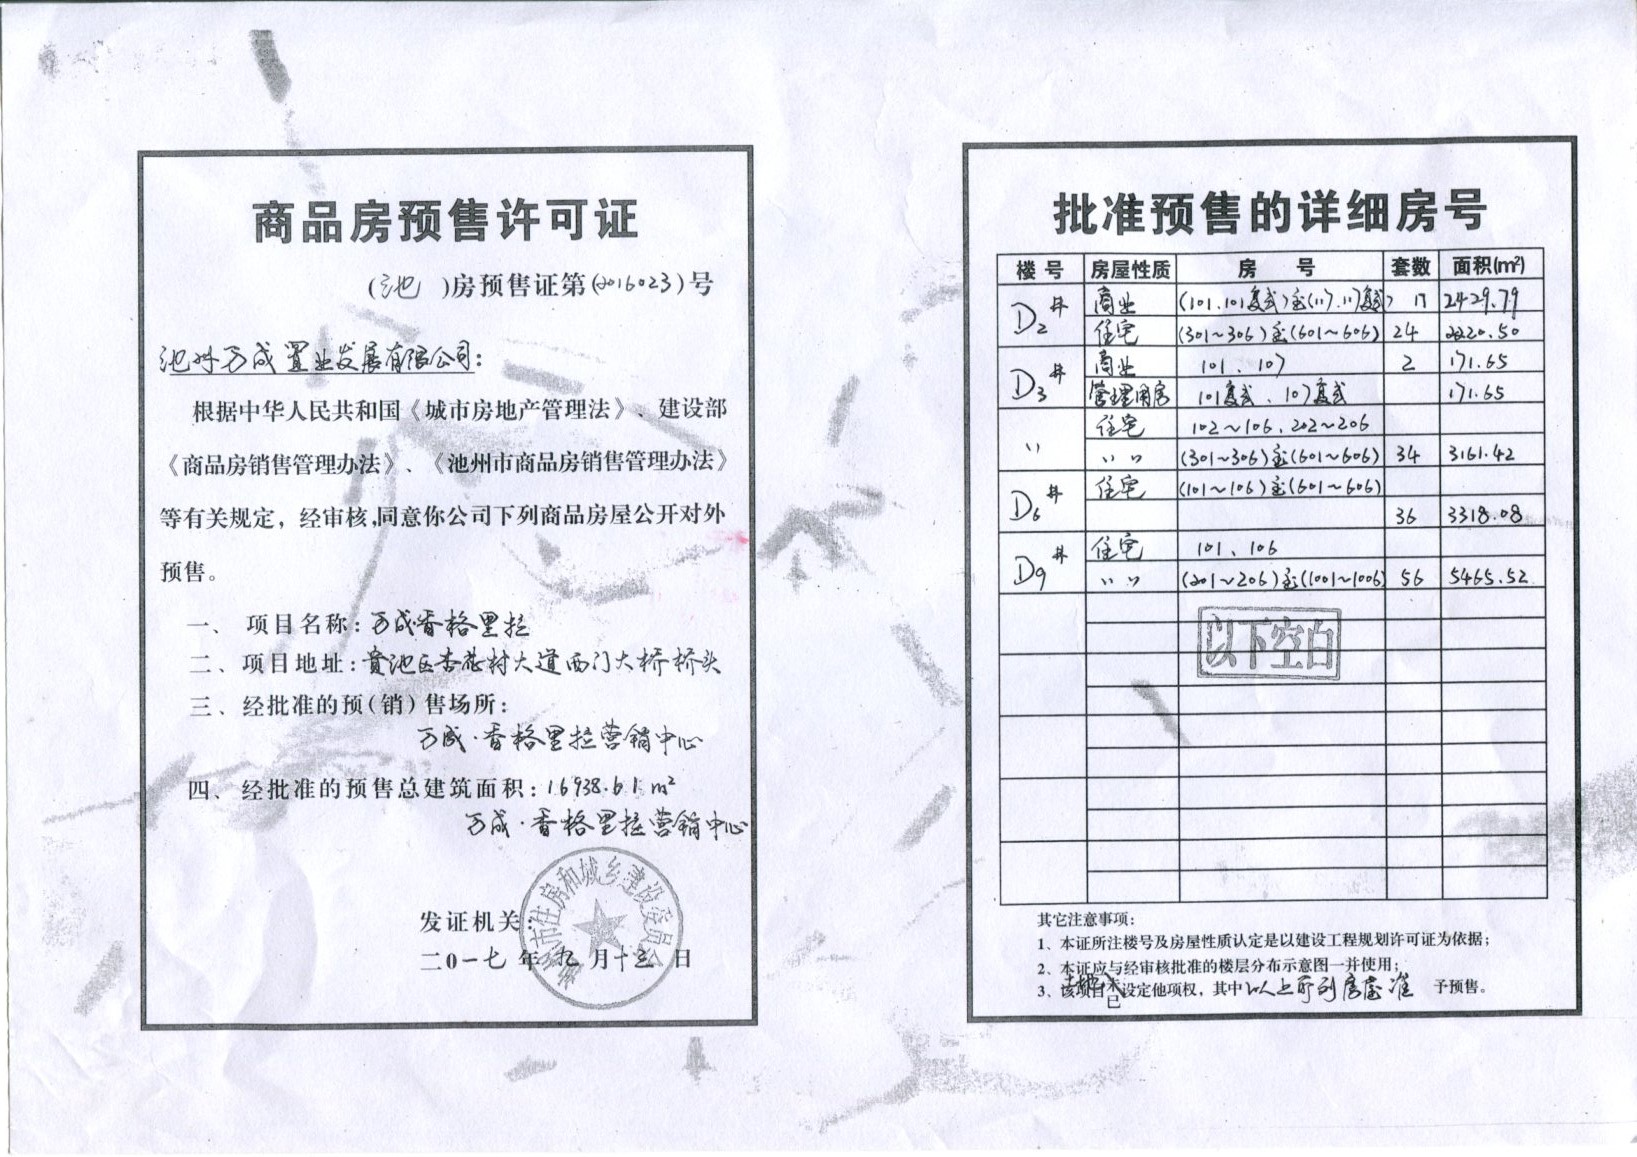 商品房预售许可证
(池)房预售证第(2016023)号
池州万成置业发展有限公司:
根据中华人民共和国《城市房地产管理法》、建设部
《商品房销售管理办法》、《池州市商品房销售管理办法》
等有关规定，经审核,同意你公司下列商品房屋公开对外
预售。
一、项目名称:万成香格里拉
二、项目地址:贵池区杏花村大道西门大桥桥头
三、经批准的预(销)售场所:
万成·香格里拉营销中心
四、经批准的预售总建筑面积:16938.61m²
万成·香格里拉营销中心
发证机关:
市住房和城乡建设委员会
二0一七年九月十五日
批准预售的详细房号
楼号 房屋性质 房号 套数 面积(m²)
D2# 商业 (101.101复式)至(117.117复式) 17 2429.79
住宅 (301~306)至(601~606) 24 2220.50
D3# 商业 101、107 2 171.65
管理用房 101复式、107复式 171.65
〃 住宅 102~106、202~206
〃〃 (301~306)至(601~606) 34 3161.42
D6# 住宅 (101~106)至(601~606)
36 3318.08
D9# 住宅 101、106
〃〃 (201~206)至(1001~1006) 56 5465.52
以下空白
其它注意事项:
1、本证所注楼号及房屋性质认定是以建设工程规划许可证为依据;
2、本证应与经审核批准的楼层分布示意图一并使用;
3、该项目土地未已设定他项权，其中以上所列房屋准予预售。